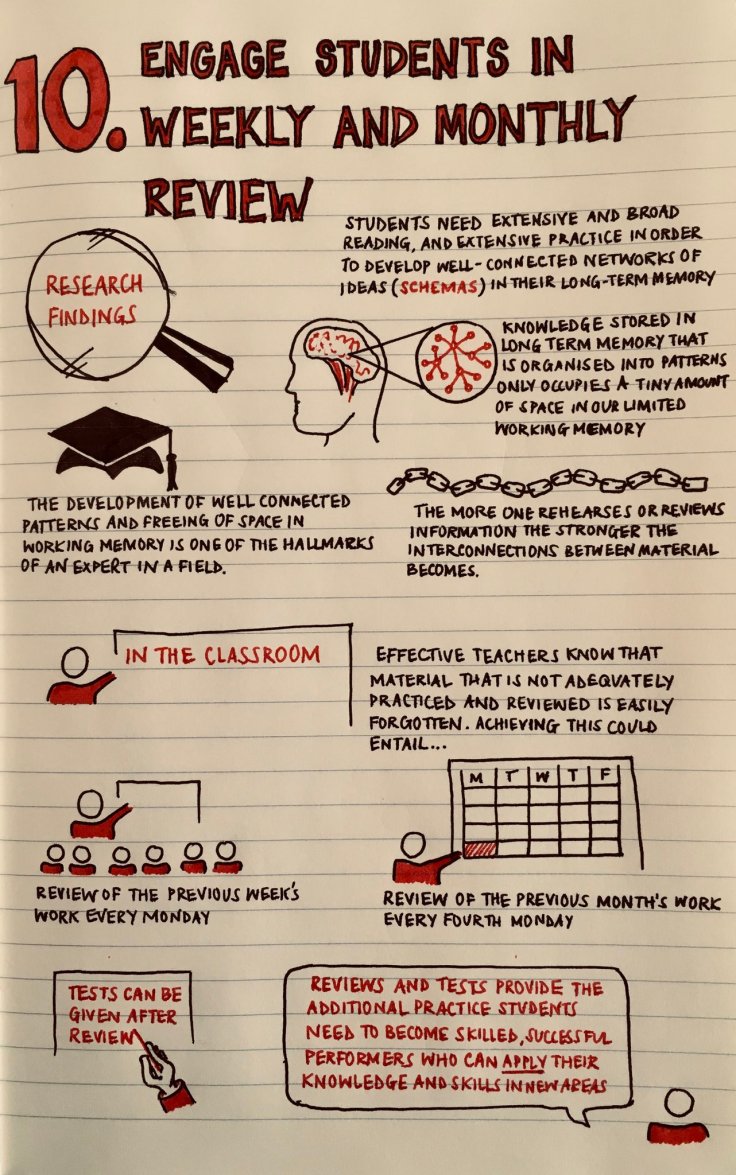 10.
ENGAGE STUDENTS IN
WEEKLY AND MONTHLY
REVIEW
RESEARCH
FINDINGS
STUDENTS NEED EXTENSIVE AND BROAD
READING, AND EXTENSIVE PRACTICE IN ORDER
TO DEVELOP WELL-CONNECTED NETWORKS OF
IDEAS (SCHEMAS) IN THEIR LONG-TERM MEMORY
KNOWLEDGE STORED IN
LONG TERM MEMORY THAT
IS ORGANISED INTO PATTERNS
ONLY OCCUPIES A TINY AMOUNT
OF SPACE IN OUR LIMITED
WORKING MEMORY
THE DEVELOPMENT OF WELL CONNECTED
PATTERNS AND FREEING OF SPACE IN
WORKING MEMORY IS ONE OF THE HALLMARKS
OF AN EXPERT IN A FIELD.
THE MORE ONE REHEARSES OR REVIEWS
INFORMATION THE STRONGER THE
INTERCONNECTIONS BETWEEN MATERIAL
BECOMES.
IN THE CLASSROOM
EFFECTIVE TEACHERS KNOW THAT
MATERIAL THAT IS NOT ADEQUATELY
PRACTICED AND REVIEWED IS EASILY
FORGOTTEN. ACHIEVING THIS COULD
ENTAIL...
M T W T F
REVIEW OF THE PREVIOUS WEEK'S
WORK EVERY MONDAY
REVIEW OF THE PREVIOUS MONTH'S WORK
EVERY FOURTH MONDAY
TESTS CAN BE
GIVEN AFTER
REVIEW
REVIEWS AND TESTS PROVIDE THE
ADDITIONAL PRACTICE STUDENTS
NEED TO BECOME SKILLED, SUCCESSFUL
PERFORMERS WHO CAN APPLY THEIR
KNOWLEDGE AND SKILLS IN NEW AREAS